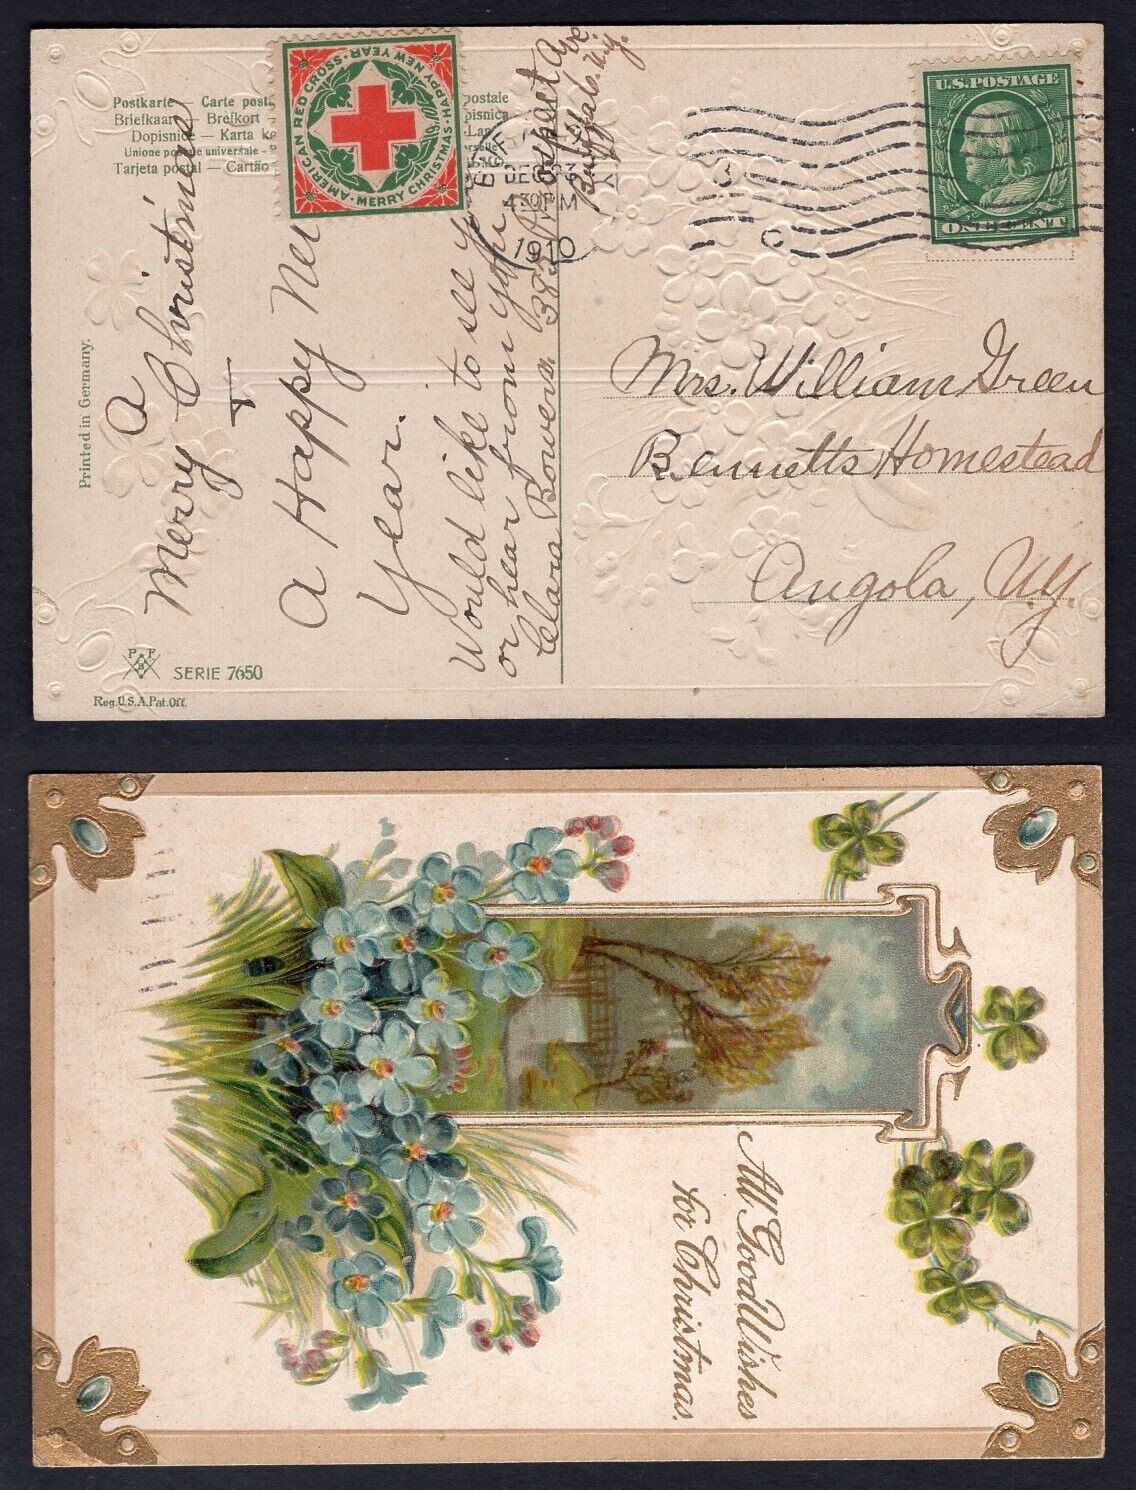 Postkarte — Carte posta
Briefkaart — Brefkort -
Dopisnice — Karta ko
Unione postale universale -
Tarjeta postal — Cartão
postale
pisnica
AMERICAN RED CROSS · HAPPY NEW YEAR
· MERRY CHRISTMAS ·
DEC 23
4 30 PM
1910
U.S. POSTAGE
ONE CENT
Printed in Germany.
A
Merry Christmas
+
A Happy New
Year.
Would like to see you
or hear from you
Clara Bowers
Buffalo, N.Y.
Mrs. William Green
Bennetts Homestead
Angola, N.Y.
P F
B
SERIE 7650
Reg. U.S.A. Pat. Off.
All Good Wishes
for Christmas.